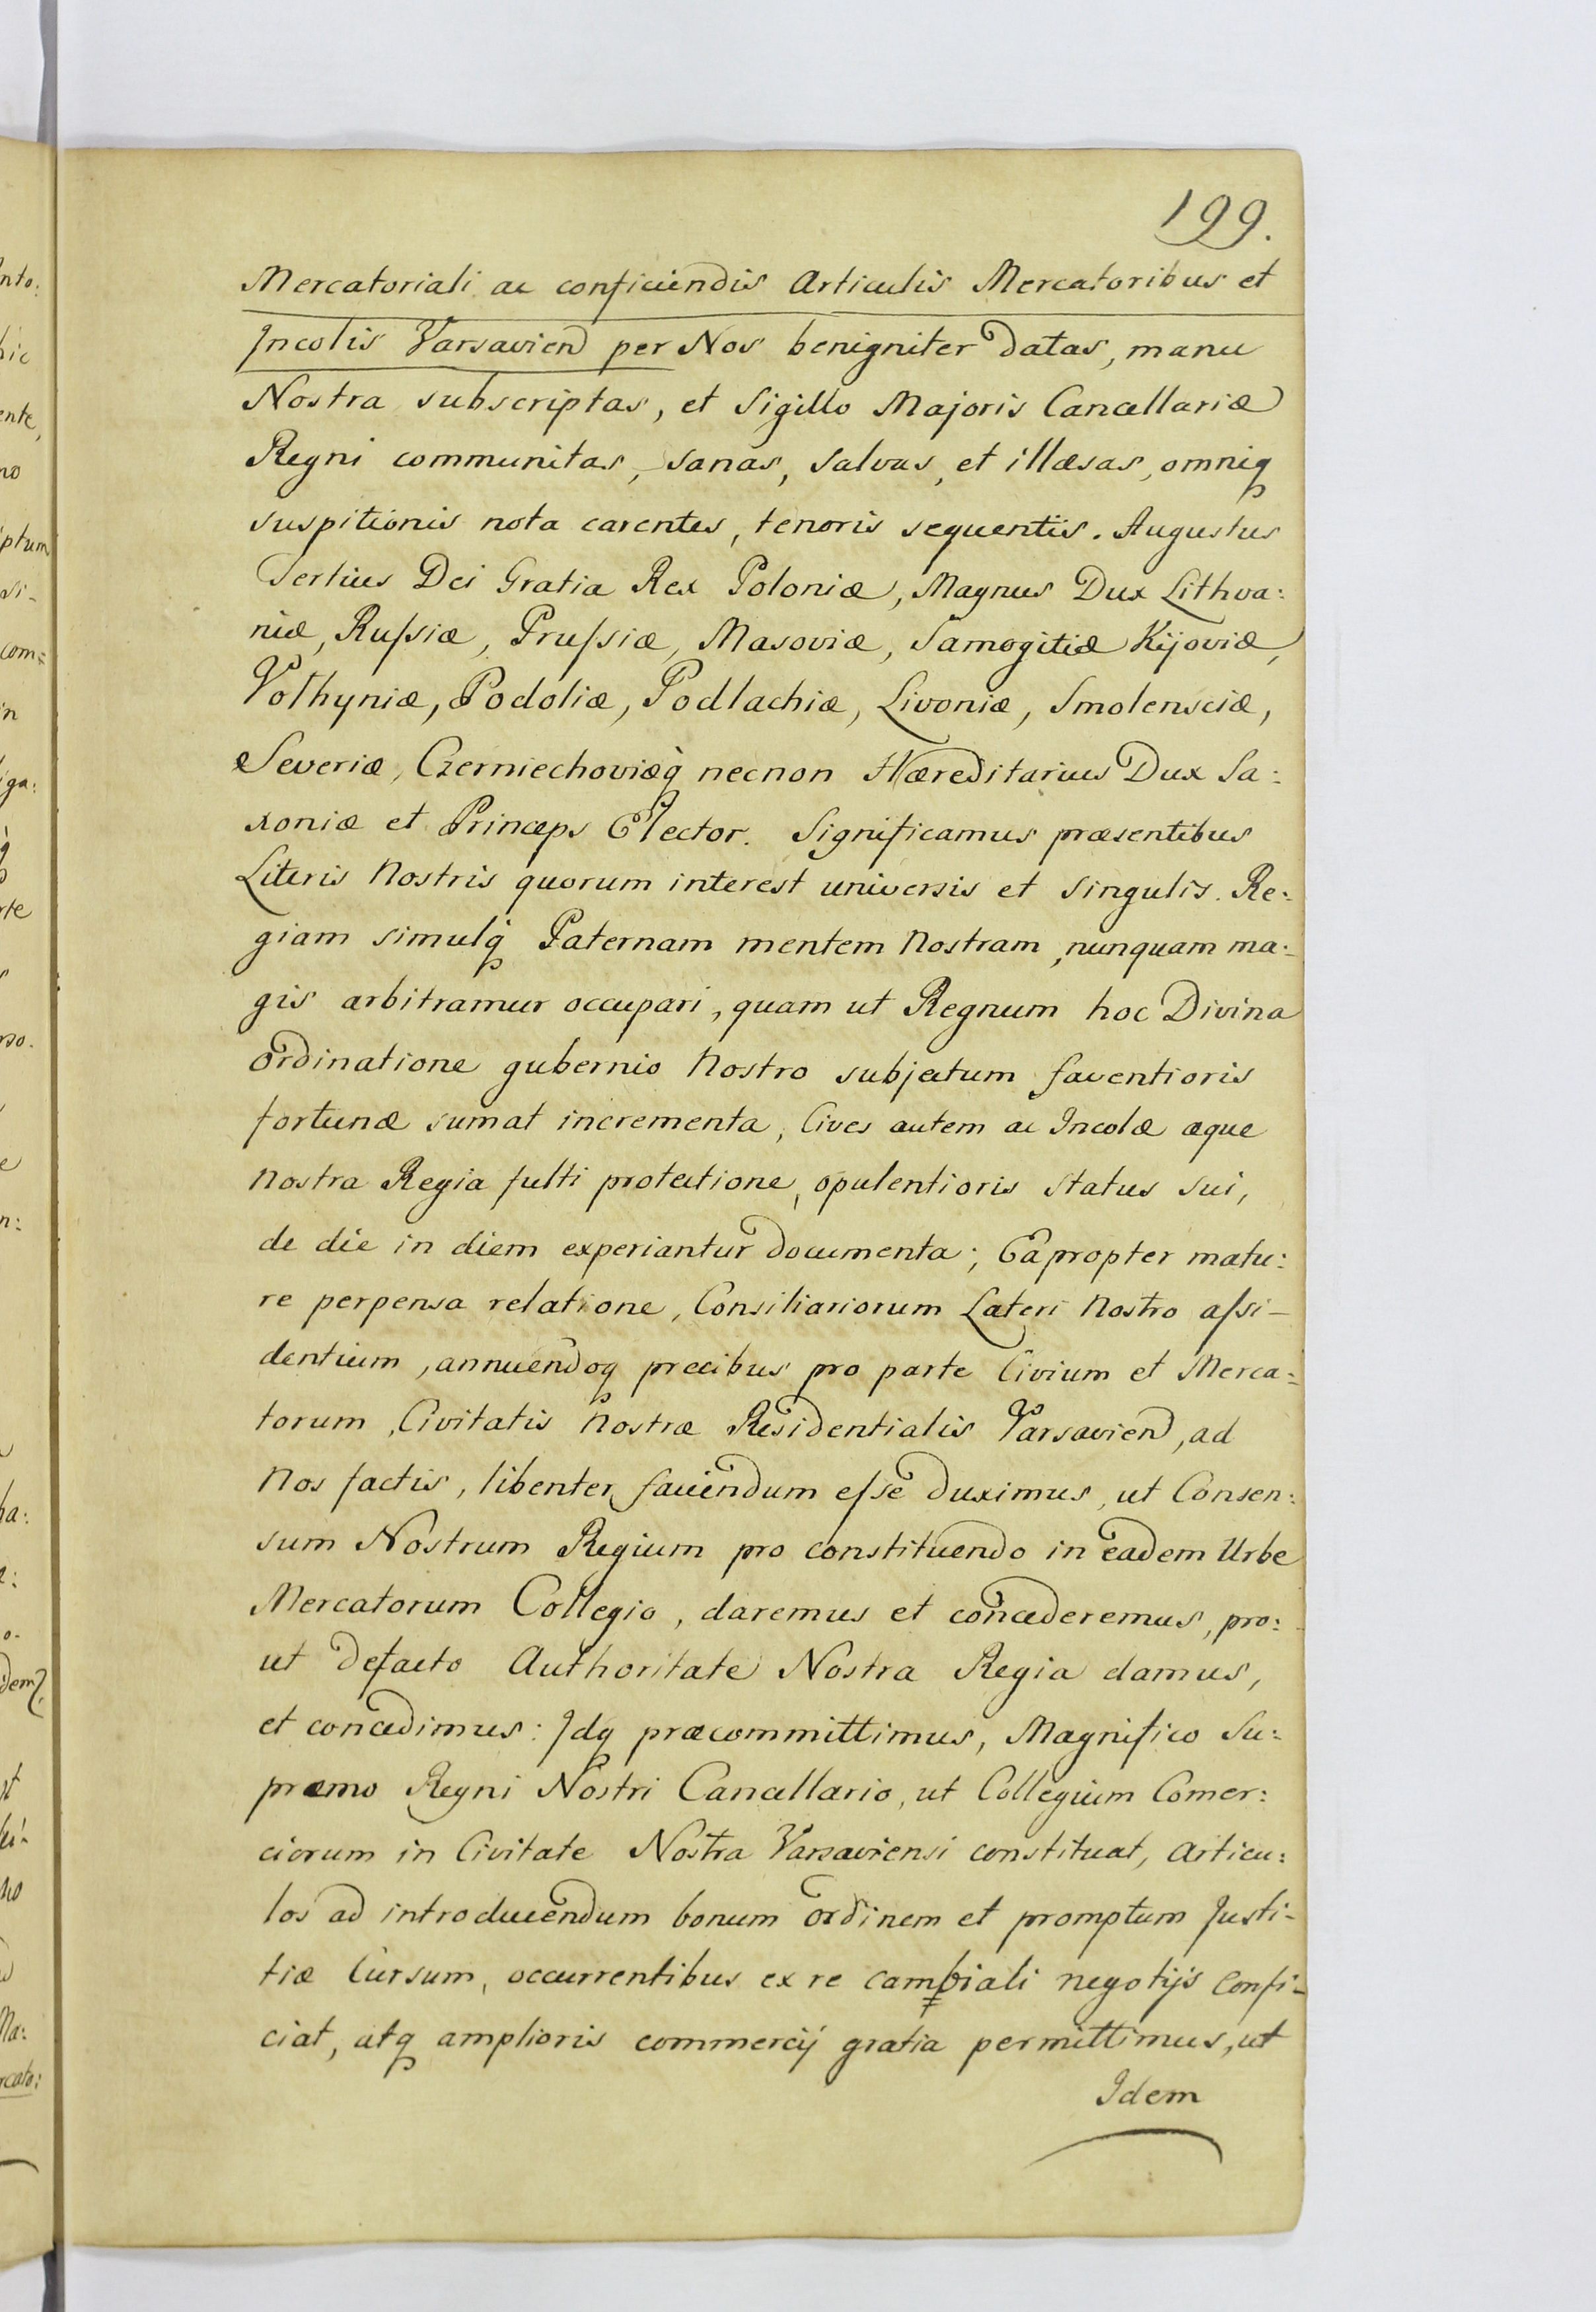 199.
Mercatoriali ac conficiendis Articulis Mercatoribus et
Incolis Varsavien per Nos benigniter datas, manu
Nostra subscriptas, et Sigillo Majoris Cancellariæ
Regni communitas, sanas, salvas, et illæsas, omniq
suspitionis nota carentes, tenoris sequentis. Augustus
Tertius Dei Gratia Rex Poloniæ, Magnus Dux Lithva:
niæ, Rußiæ, Prußiæ, Masoviæ, Samogitiæ Kijoviæ,
Volhyniæ, Podoliæ, Podlachiæ, Livoniæ, Smolensciæ,
Severiæ, Czerniechoviæq necnon Hæreditarius Dux Sa:
xoniæ et Princeps Elector. Significamus præsentibus
Literis Nostris quorum interest universis et singulis. Re:
giam simulq Paternam mentem Nostram, nunquam ma:
gis arbitramur occupari, quam ut Regnum hoc Divina
ordinatione gubernio Nostro subjectum faventioris
fortunæ sumat incrementa, Cives autem ac Incolæ æque
Nostra Regia fulti protectione, opulentioris Status sui,
de die in diem experiantur documenta; Eapropter matu:
re perpensa relatione, Consiliariorum Lateri Nostro aßi-
dentium, annuendoq precibus pro parte Civium et Merca:
torum, Civitatis Nostræ Residentialis Varsavien, ad
Nos factis, libenter faciendum eße duximus, ut Consen:
sum Nostrum Regium pro constituendo in eadem Urbe
Mercatorum Collegio, daremus et concederemus, pro:
ut defacto Authoritate Nostra Regia damus,
et concedimus: Idq præcommittimus, Magnifico Su:
præmo Regni Nostri Cancellario, ut Collegium Comer:
ciorum in Civitate Nostra Varsaviensi constituat, Articu:
los ad introducendum bonum ordinem et promptum Justi-
tiæ Cursum, occurrentibus ex re cambiali negotijs confi-
ciat, atq amplioris commercij gratia permittimus, ut
Idem